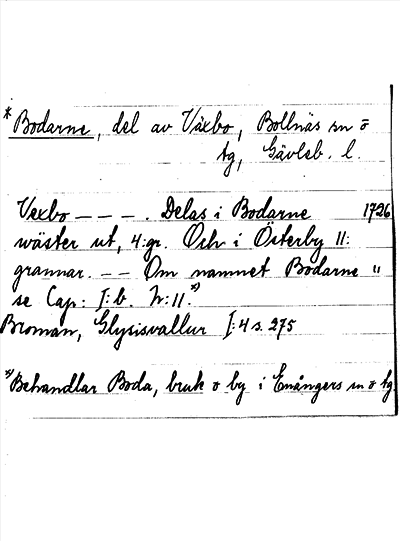 * Bodarne, del av Växbo, Bollnäs sn o
tg, Gävleb. l.
Vexbo - - - . Delas i Bodarne 1726
wäster ut, 4:gr. Och i Österby 11:
grannar. - - Om namnet Bodarne "
se Cap: I:b. N:11.*)
Broman, Glysisvallur I:4 s. 275
*) Behandlar Boda, bruk o by i Enångers sn o tg